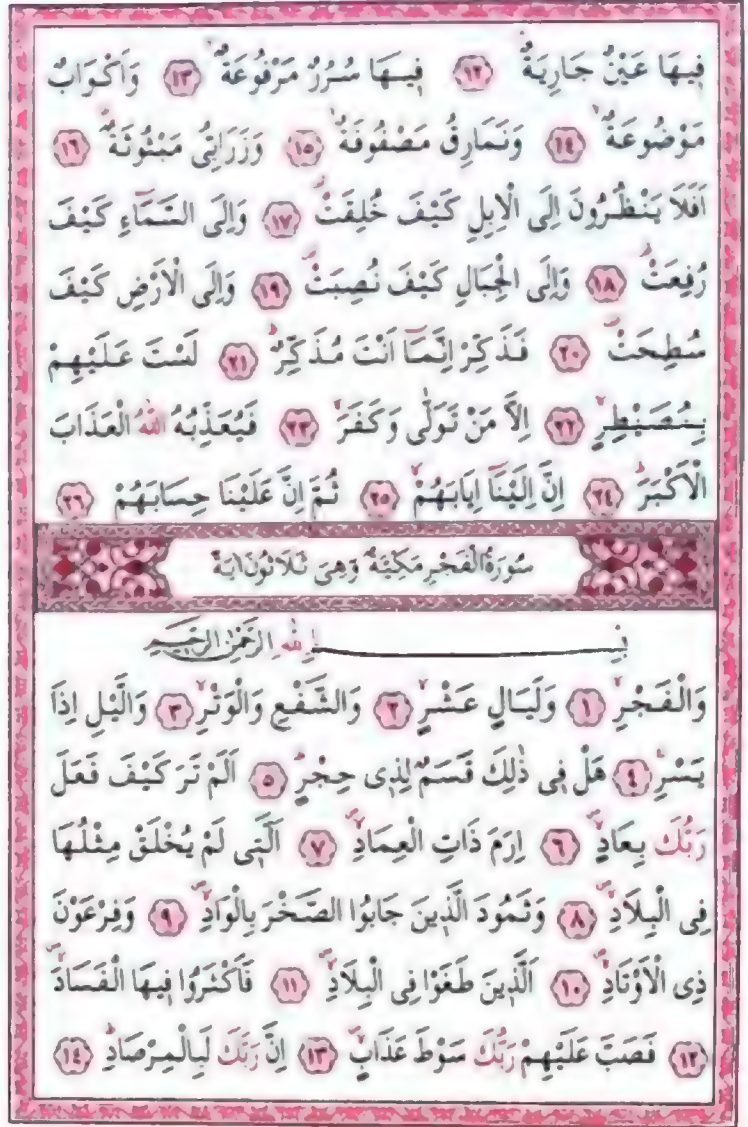 فِيهَا عَيْنٌ جَارِيَةٌ ﴿١٢﴾ فِيهَا سُرُرٌ مَرْفُوعَةٌ ﴿١٣﴾ وَاَكْوَابٌ
مَوْضُوعَةٌ ﴿١٤﴾ وَنَمَارِقُ مَصْفُوفَةٌ ﴿١٥﴾ وَزَرَابِيُّ مَبْثُوثَةٌ ﴿١٦﴾
اَفَلَا يَنْظُرُونَ اِلَى الْاِبِلِ كَيْفَ خُلِقَتْ ﴿١٧﴾ وَاِلَى السَّمَٓاءِ كَيْفَ
رُفِعَتْ ﴿١٨﴾ وَاِلَى الْجِبَالِ كَيْفَ نُصِبَتْ ﴿١٩﴾ وَاِلَى الْاَرْضِ كَيْفَ
سُطِحَتْ ﴿٢٠﴾ فَذَكِّرْ اِنَّمَٓا اَنْتَ مُذَكِّرٌ ﴿٢١﴾ لَسْتَ عَلَيْهِمْ
بِمُصَيْطِرٍ ﴿٢٢﴾ اِلَّا مَنْ تَوَلّٰى وَكَفَرَ ﴿٢٣﴾ فَيُعَذِّبُهُ اللّٰهُ الْعَذَابَ
الْاَكْبَرَ ﴿٢٤﴾ اِنَّ اِلَيْنَٓا اِيَابَهُمْ ﴿٢٥﴾ ثُمَّ اِنَّ عَلَيْنَا حِسَابَهُمْ ﴿٢٦﴾
سُورَةُ الْفَجْرِ مَكِّيَّةٌ وَهِىَ ثَلَاثُونَ اٰيَةً
بِسْمِ اللّٰهِ الرَّحْمٰنِ الرَّحِيمِ
وَالْفَجْرِ ﴿١﴾ وَلَيَالٍ عَشْرٍ ﴿٢﴾ وَالشَّفْعِ وَالْوَتْرِ ﴿٣﴾ وَالَّيْلِ اِذَا
يَسْرِ ﴿٤﴾ هَلْ فِى ذٰلِكَ قَسَمٌ لِذِى حِجْرٍ ﴿٥﴾ اَلَمْ تَرَ كَيْفَ فَعَلَ
رَبُّكَ بِعَادٍ ﴿٦﴾ اِرَمَ ذَاتِ الْعِمَادِ ﴿٧﴾ اَلَّتِى لَمْ يُخْلَقْ مِثْلُهَا
فِى الْبِلَادِ ﴿٨﴾ وَثَمُودَ الَّذِينَ جَابُوا الصَّخْرَ بِالْوَادِ ﴿٩﴾ وَفِرْعَوْنَ
ذِى الْاَوْتَادِ ﴿١٠﴾ اَلَّذِينَ طَغَوْا فِى الْبِلَادِ ﴿١١﴾ فَاَكْثَرُوا فِيهَا الْفَسَادَ
﴿١٢﴾ فَصَبَّ عَلَيْهِمْ رَبُّكَ سَوْطَ عَذَابٍ ﴿١٣﴾ اِنَّ رَبَّكَ لَبِالْمِرْصَادِ ﴿١٤﴾